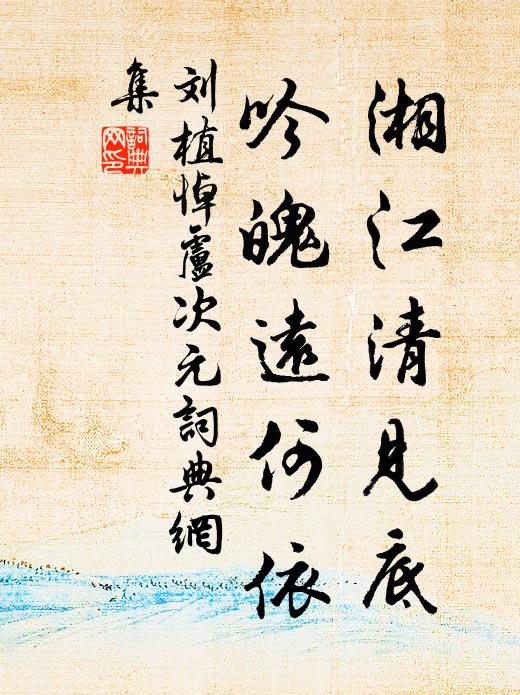 湘江清見底
吟魄遠何依
刘植悼盧次元詞典網
集
詞典网印